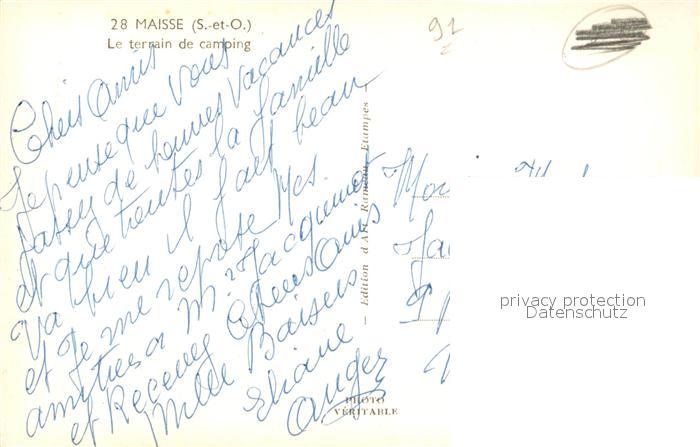 28 MAISSE (S.-et-O.)
Le terrain de camping
92
Chers Amis
Je pense que vous
passez de bonnes vacances
et que toutes la famille
va bien il fait beau
et je me repose Mes
amitiés a Mr Jacquinot
et Recevez Chers Amis
Mille Baisers
Eliane
Auger
Edition d'Art Rameau, Etampes
PHOTO
VÉRITABLE
privacy protection
Datenschutz